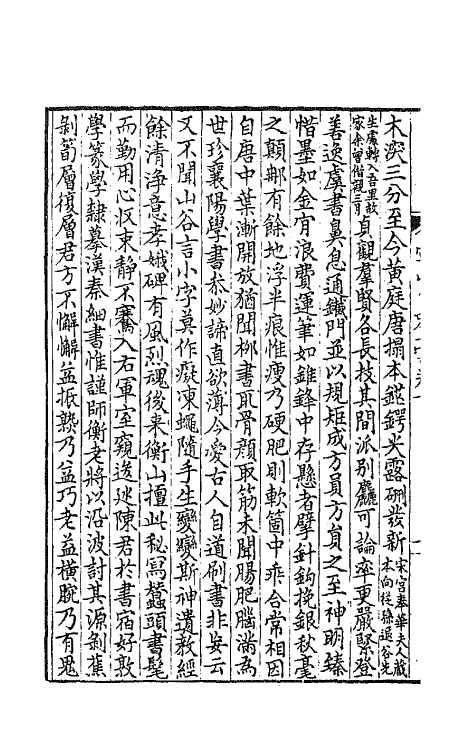 木深三分至今黃庭唐搨本鋩鍔光露硎發新宋宮奉華夫人藏本向從孫退谷先
生處轉入吾里故家余曾借觀三月貞觀羣賢各長技其間派別麤可論率更嚴緊登
善逸虞書鼻息通鐵門並以規矩成方員方員之至神明臻
惜墨如金宵浪費運筆如錐鋒中存懸者擘針鈎挽銀秋毫
之顛那有餘地浮半痕惟瘦乃硬肥則軟箇中乖合常相因
自唐中葉漸開放猶聞柳書取骨顏取筋未聞腸肥腦滿為
世珍襄陽學書叅妙諦直欲薄今愛古人自道刷書非妄云
又不聞山谷言小字莫作癡凍蠅隨手生變變斯神遺教經
餘清淨意孝娥碑有風烈魂後來衡山擅此秘寫蠶頭書髦
而勤用心収束靜不騫入右軍室窺送迷陳君於書宿好敦
學篆學隸摹漢秦細書惟謹師衡老將以沿波討其源剝蕉
剝筍層復層君方不懈懈益振熟乃益巧老益橫腕乃有鬼